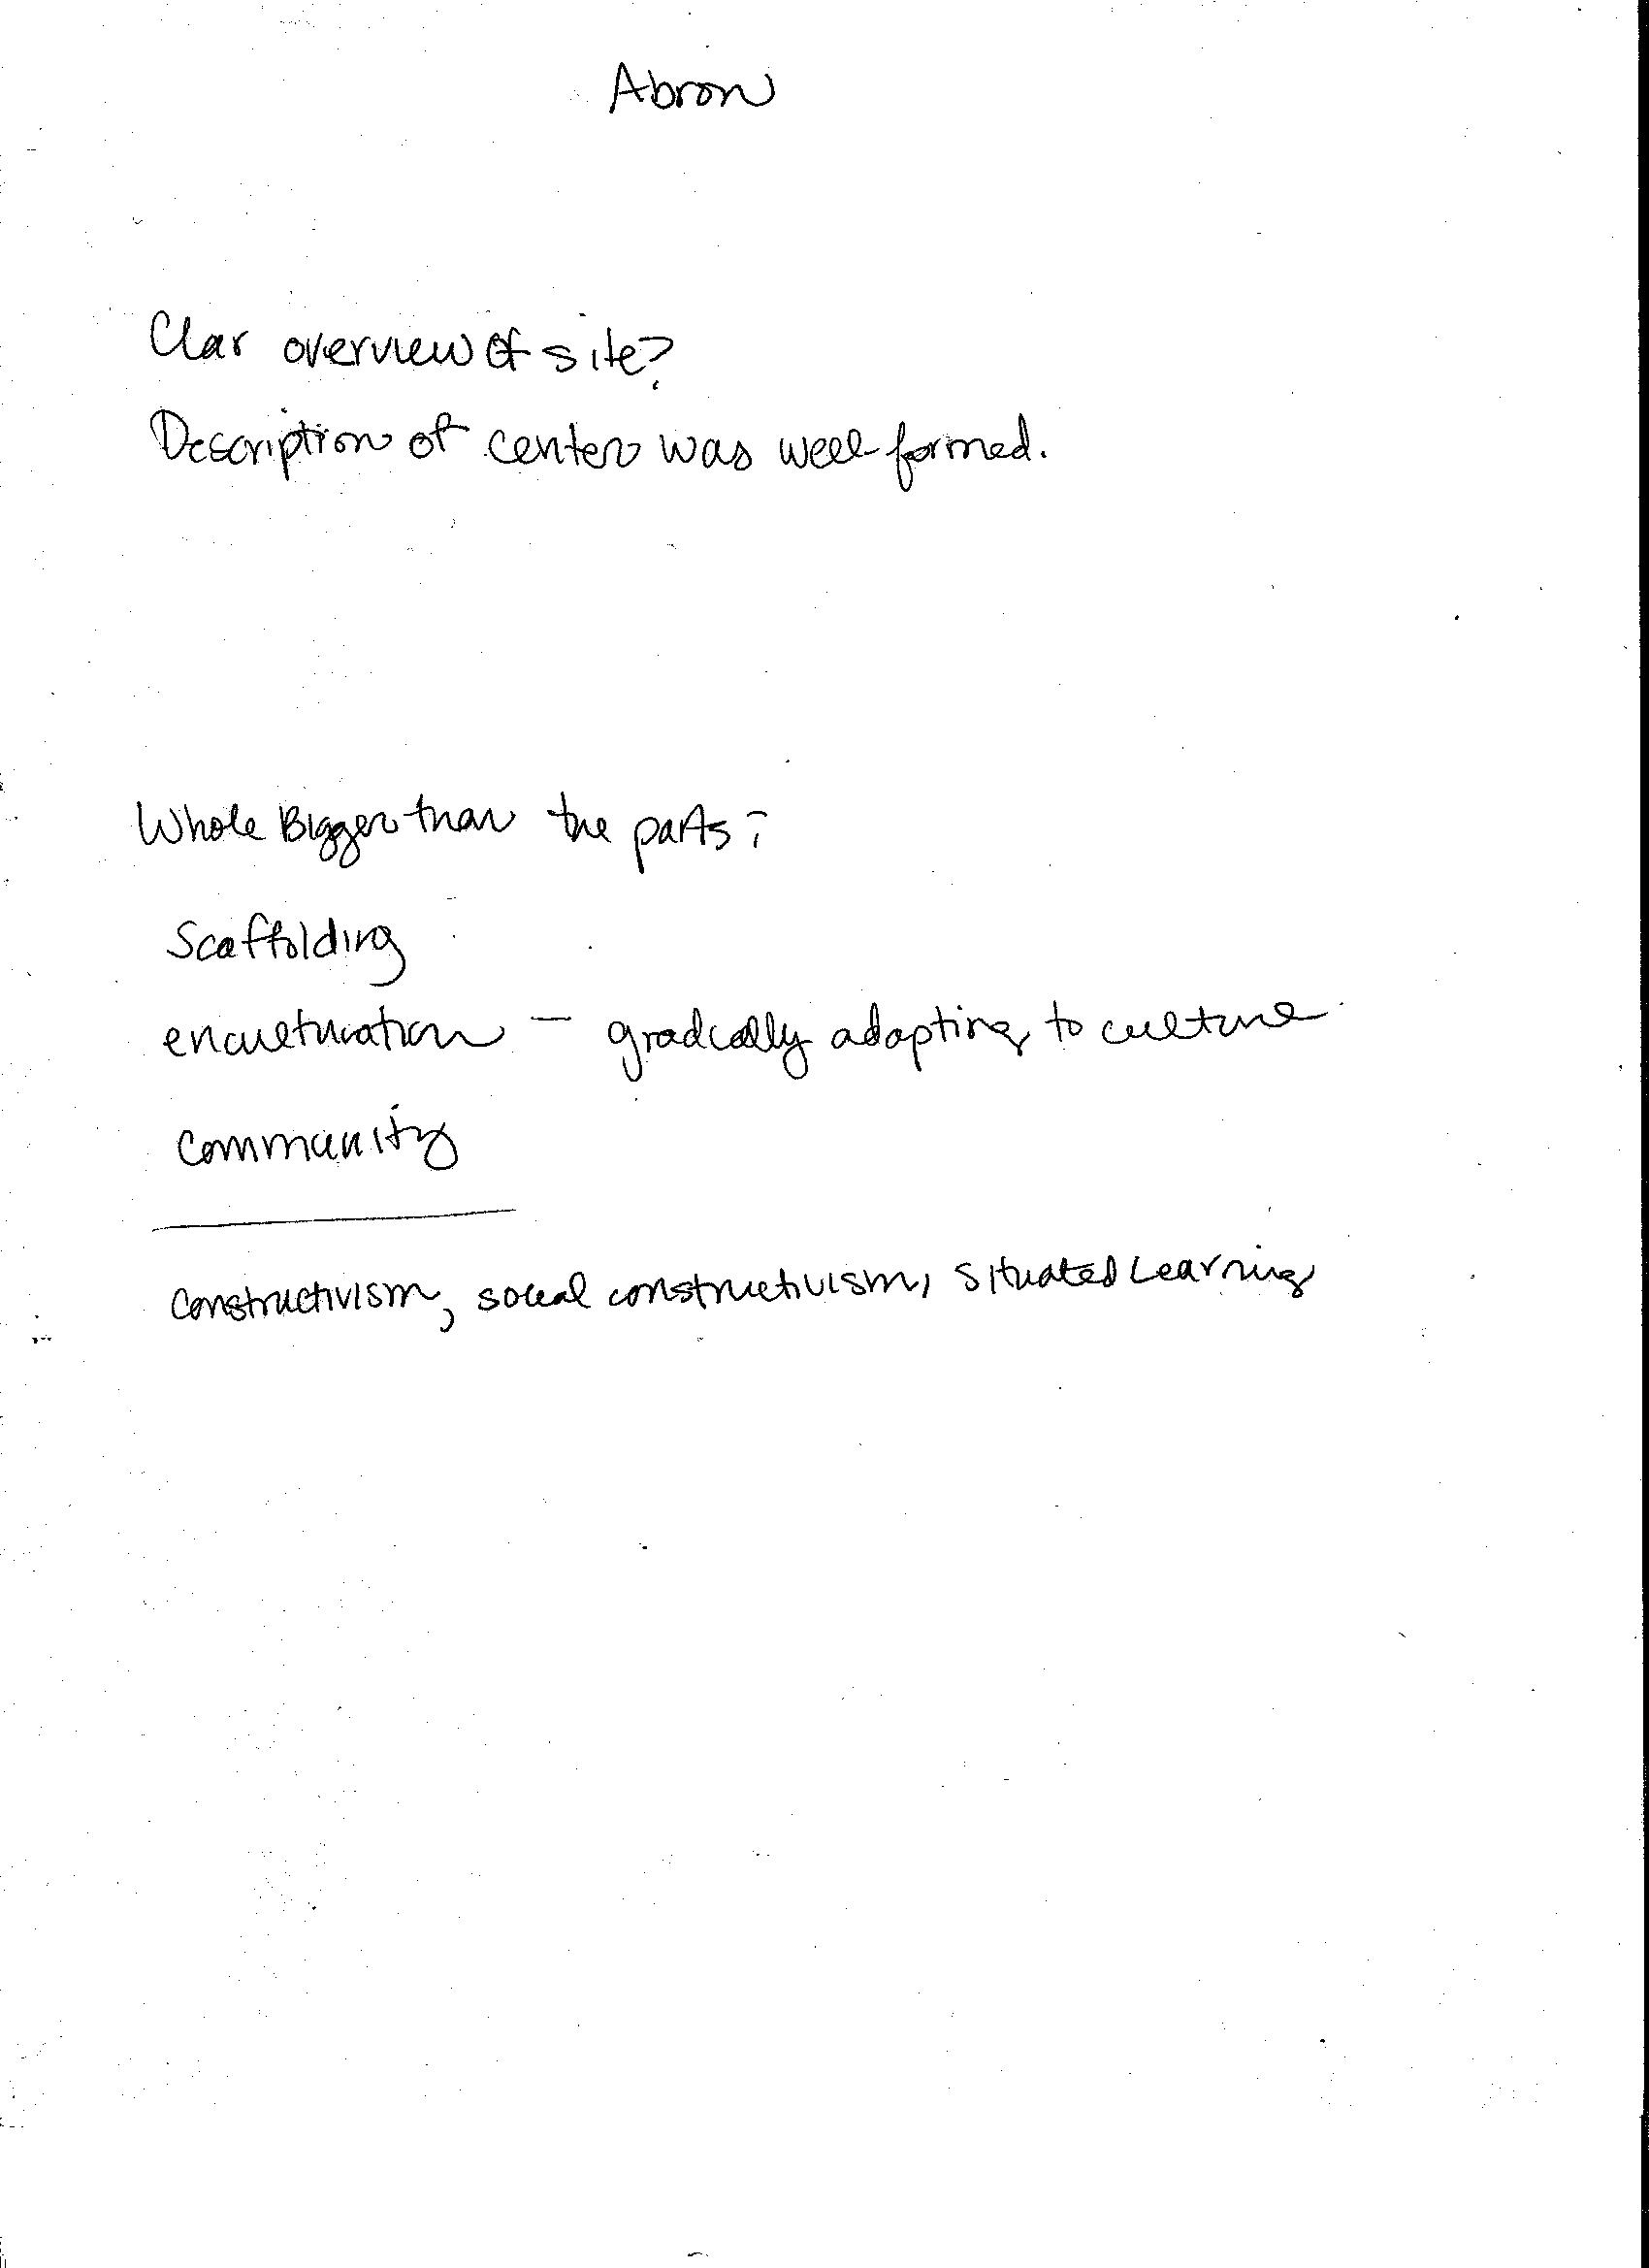 Abron
Clar overview of site?
Description of center was well formed.
Whole Bigger than the parts;
Scaffolding
enculturation — gradually adapting to culture
Community
Constructivism, social constructivism, Situated Learning